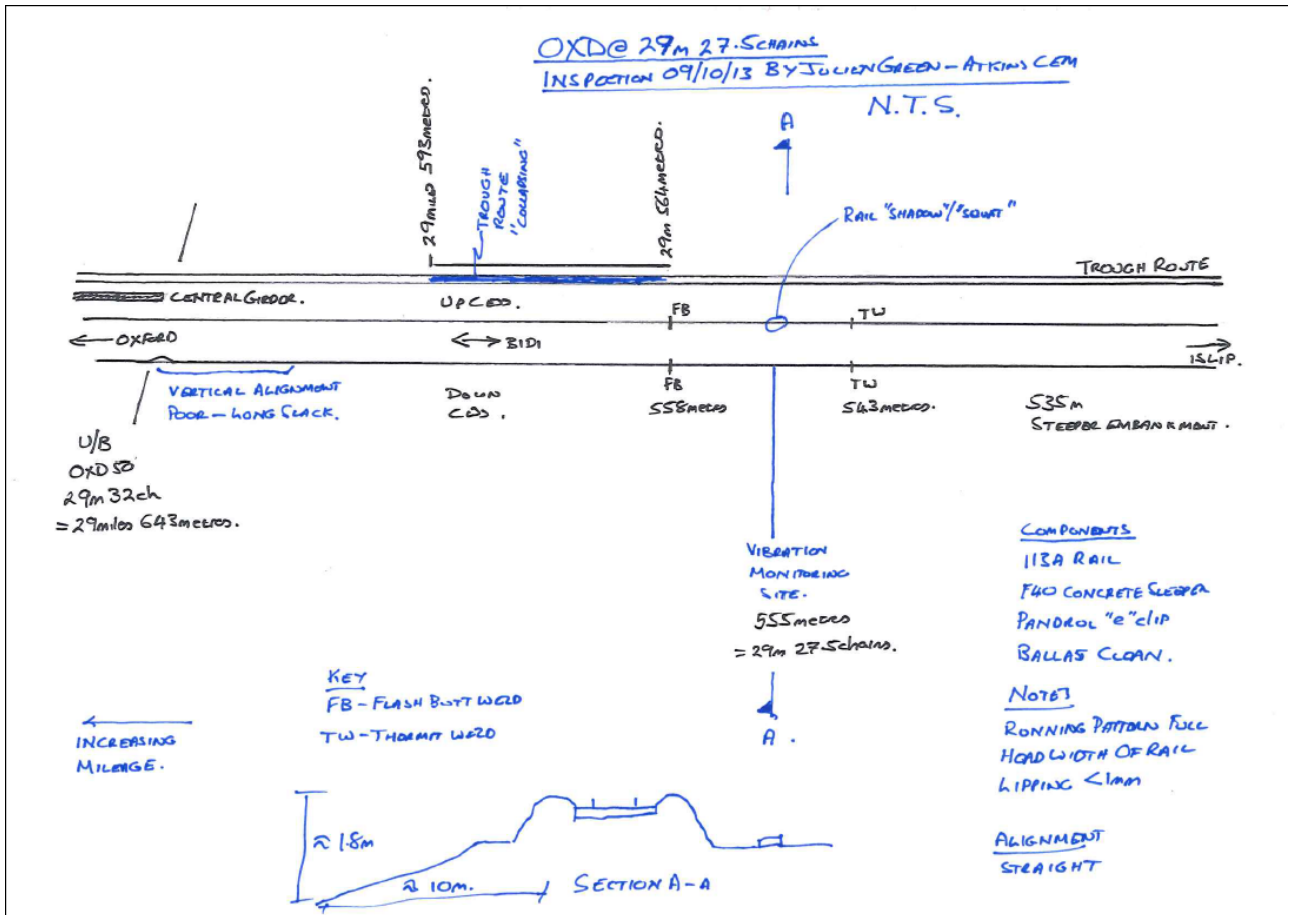 OXD@ 29m 27.5CHAINS
INSPECTION 09/10/13 BY JULIEN GREEN – ATKINS CEM
N.T.S.
A
29 MILES 593METRES.
TROUGH
ROUTE
"COLLAPSING"
29m 564METRES.
RAIL "SHADOW"/"SQUAT"
TROUGH ROUTE
CENTRAL GIRDER.
UP CESS.
FB
TW
← OXFORD
↔ BIDI
ISLIP.
VERTICAL ALIGNMENT
POOR – LONG SLACK.
DOWN
CESS.
FB
558METRES
TW
543METRES.
535m
STEEPER EMBANKMENT.
U/B
OXD 50
29m 32ch
= 29miles 643metres.
VIBRATION
MONITORING
SITE.
555metres
= 29m 27.5chains.
A.
COMPONENTS
113A RAIL
F40 CONCRETE SLEEPER
PANDROL "e" clip
BALLAST CLEAN.
NOTES
RUNNING PATTERN FULL
HEAD WIDTH OF RAIL
LIPPING <1mm
ALIGNMENT
STRAIGHT
KEY
FB – FLASH BUTT WELD
TW – THERMIT WELD
INCREASING
MILEAGE.
≈ 1.8m
≈ 10m.
SECTION A-A